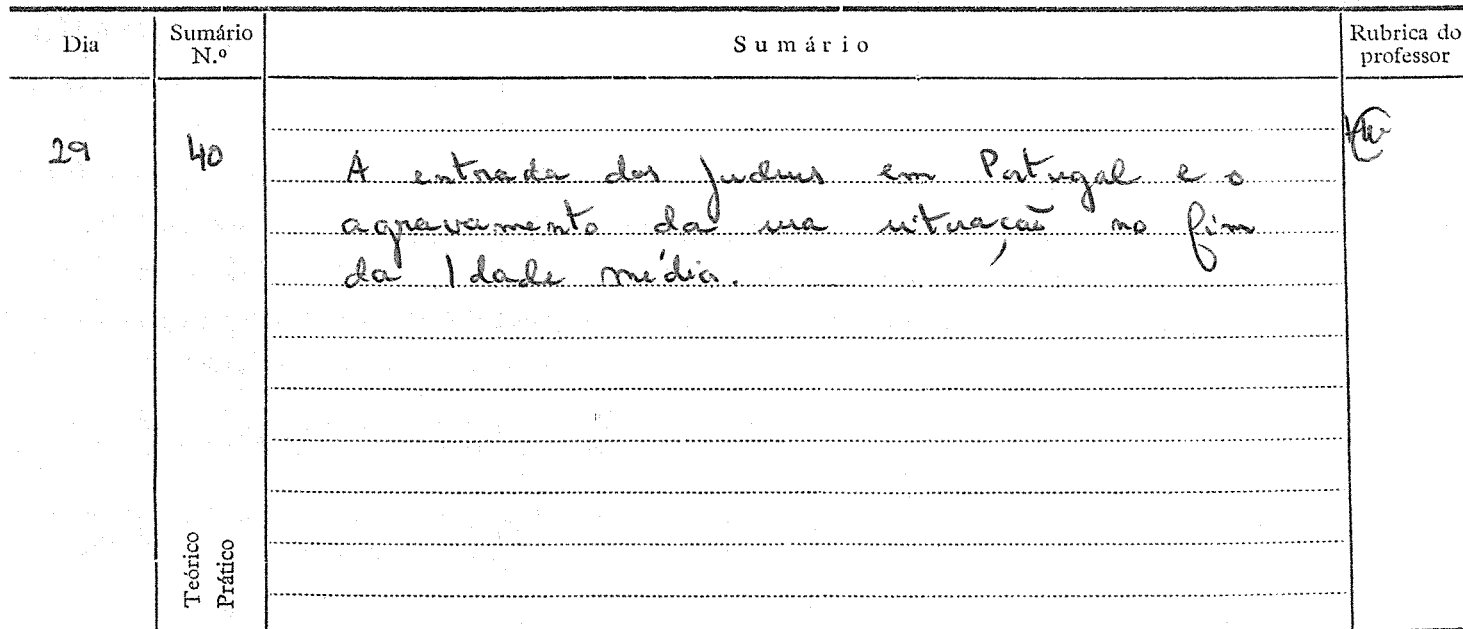 Dia Sumário N.º Sumário Rubrica do professor
29 40 A entrada dos judeus em Portugal e o
agravamento da sua situação no fim
da Idade média.
Teórico
Prático